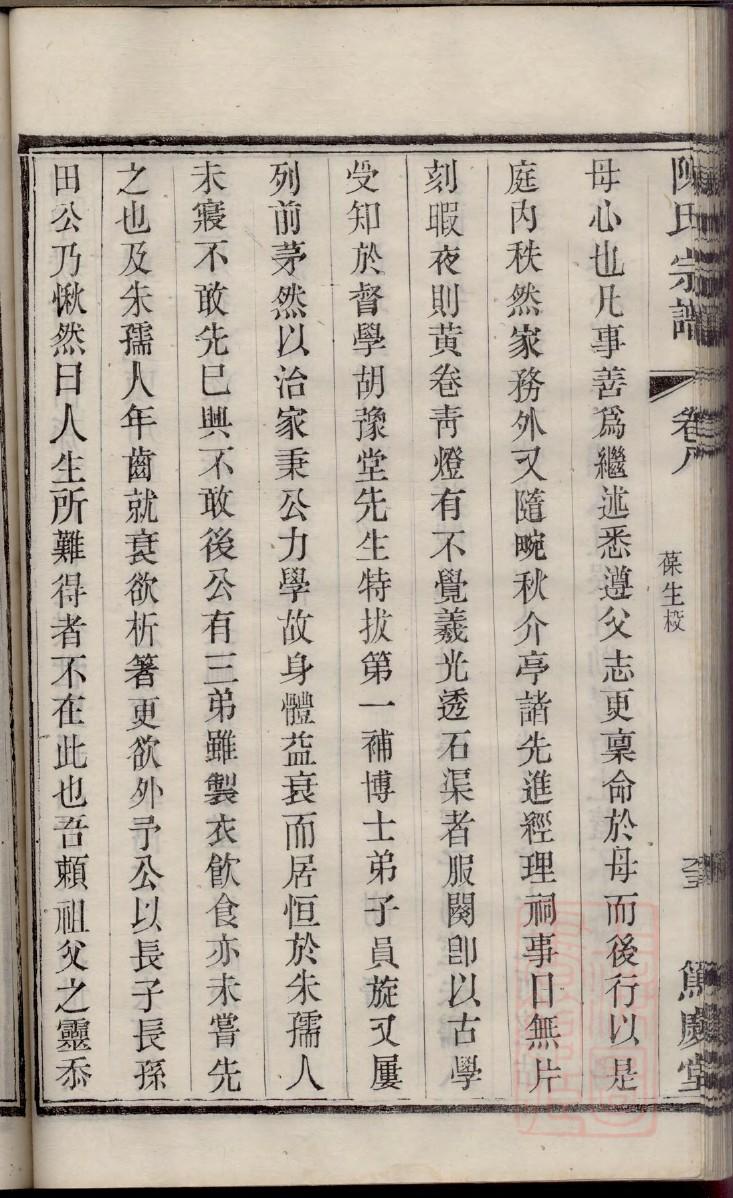 陳氏宗譜
卷八
葆生校
篤慶堂
母心也凡事善爲繼述悉遵父志更稟命於母而後行以是
庭內秩然家務外又隨畹秋介亭諸先進經理祠事日無片
刻暇夜則黃卷靑燈有不覺羲光透石渠者服闋卽以古學
受知於督學胡豫堂先生特拔第一補博士弟子員旋又屢
列前茅然以治家秉公力學故身體益衰而居恒於朱孺人
未寢不敢先已興不敢後公有三弟雖製衣飮食亦未嘗先
之也及朱孺人年齒就衰欲析箸更欲外予公以長子長孫
田公乃愀然曰人生所難得者不在此也吾賴祖父之靈忝